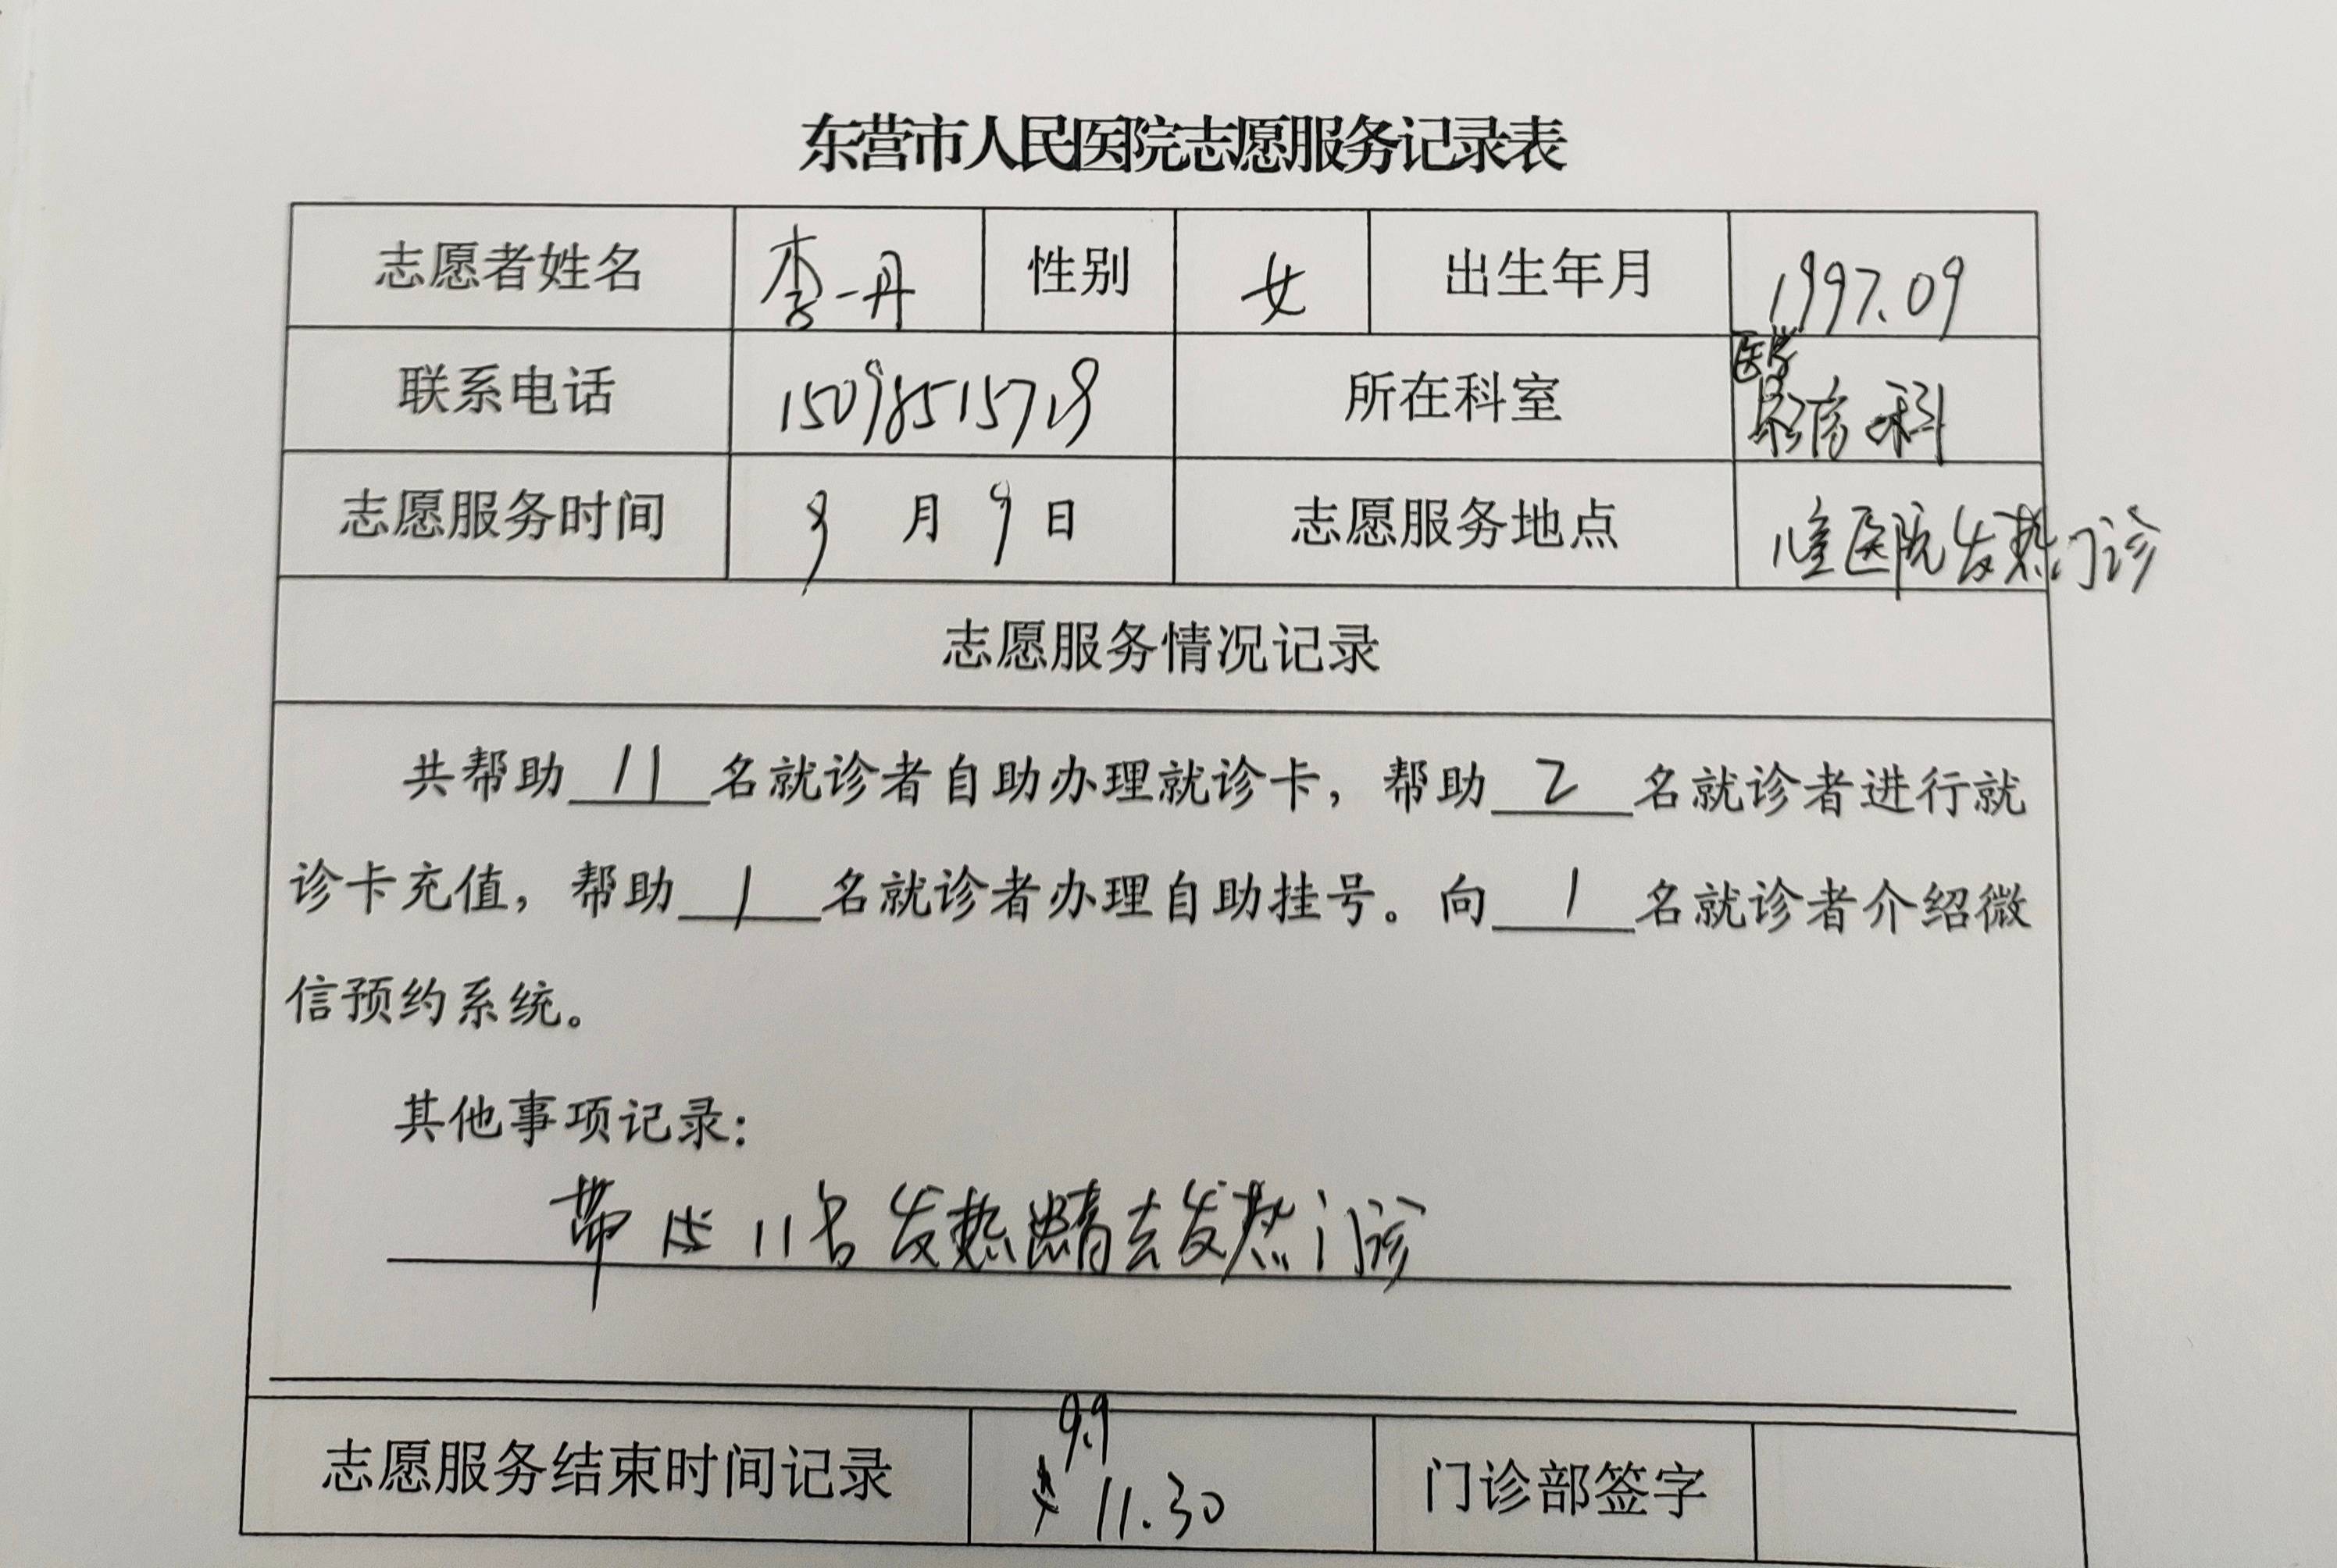 东营市人民医院志愿服务记录表
志愿者姓名 李一丹 性别 女 出生年月 1997.09
联系电话 所在科室 医学 科
志愿服务时间 9月9日 志愿服务地点 儿童医院发热门诊
志愿服务情况记录
共帮助 11 名就诊者自助办理就诊卡，帮助 2 名就诊者进行就
诊卡充值，帮助 1 名就诊者办理自助挂号。向 1 名就诊者介绍微
信预约系统。
其他事项记录：
带 11名发热 去发热门诊
志愿服务结束时间记录 9.9 11.30 门诊部签字